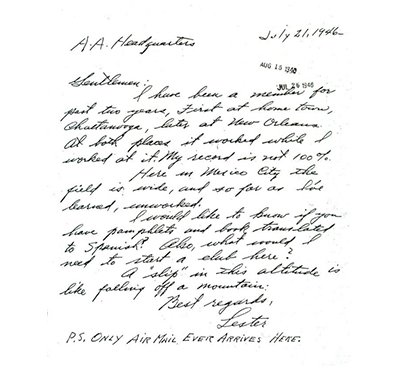 July 21, 1946
A.A. Headquarters
AUG 15 1946
JUL 26 1946
Gentlemen:
I have been a member for
past two years, First at home town,
Chattanooga, later at New Orleans.
At both places it worked while I
worked at it. My record is not 100%.
Here in Mexico City the
field is wide, and so far as I've
learned, unworked.
I would like to know if you
have pamphlets and book translated
to Spanish? Also, what would I
need to start a club here?
A "slip" in this altitude is
like falling off a mountain.
Best regards,
Lester
P.S. ONLY AIR MAIL EVER ARRIVES HERE.